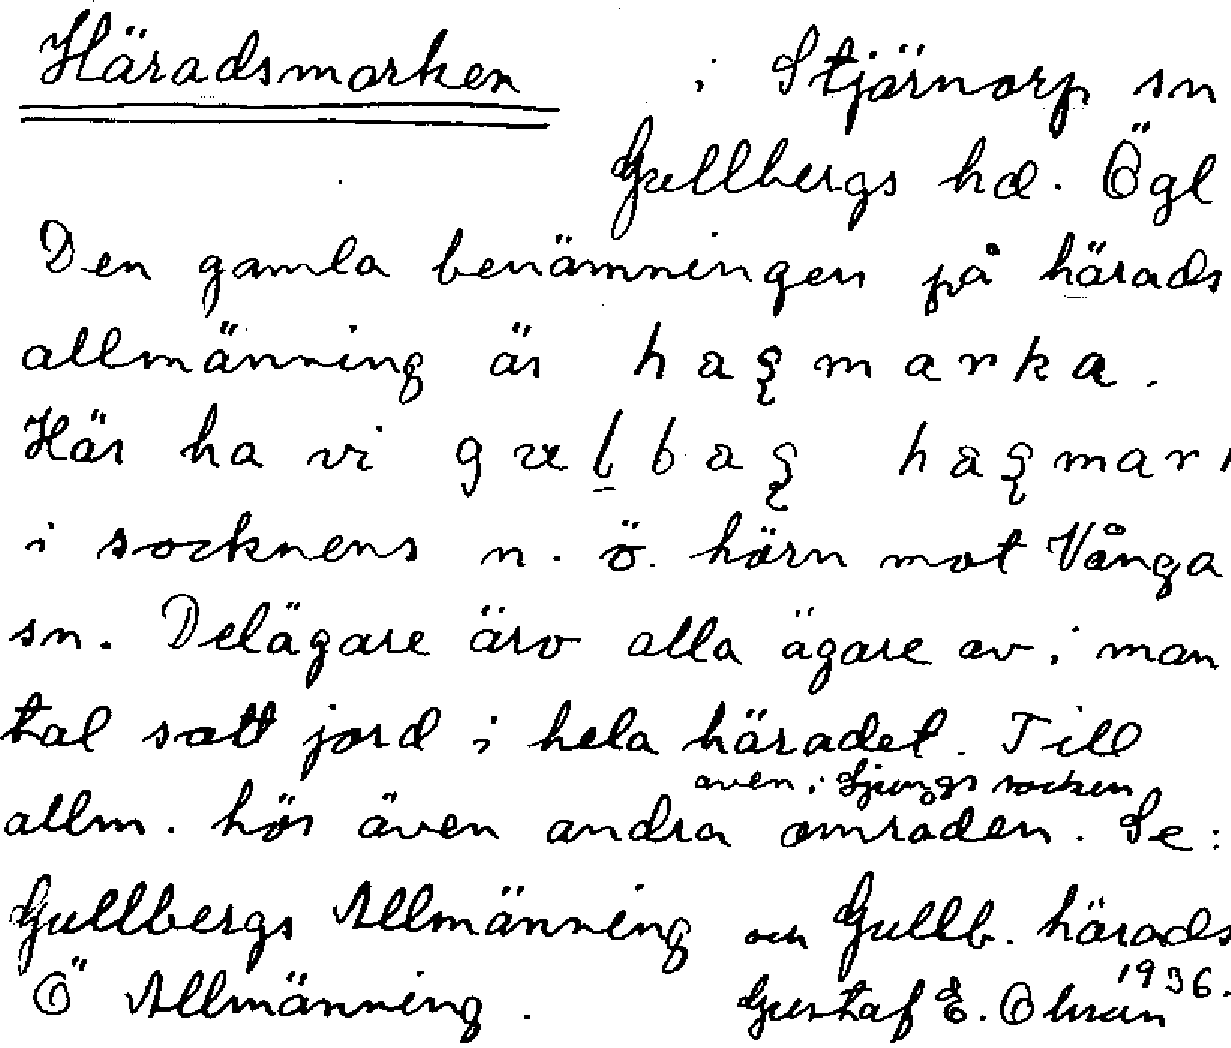 Häradsmarken i Stjärnorp sn
Gullbergs hd. Ögl
Den gamla benämningen på härads
allmänning är haʂmarka.
Här ha vi gulbaʂ haʂmar
i socknens n. ö. hörn mot Vånga
sn. Delägare äro alla ägare av i man
tal satt jord i hela häradet. Till
även i Ljungs socken
allm. hör även andra områden. Se:
Gullbergs Allmänning och Gullb. härads
Ö Allmänning. Gustaf E. 1936.